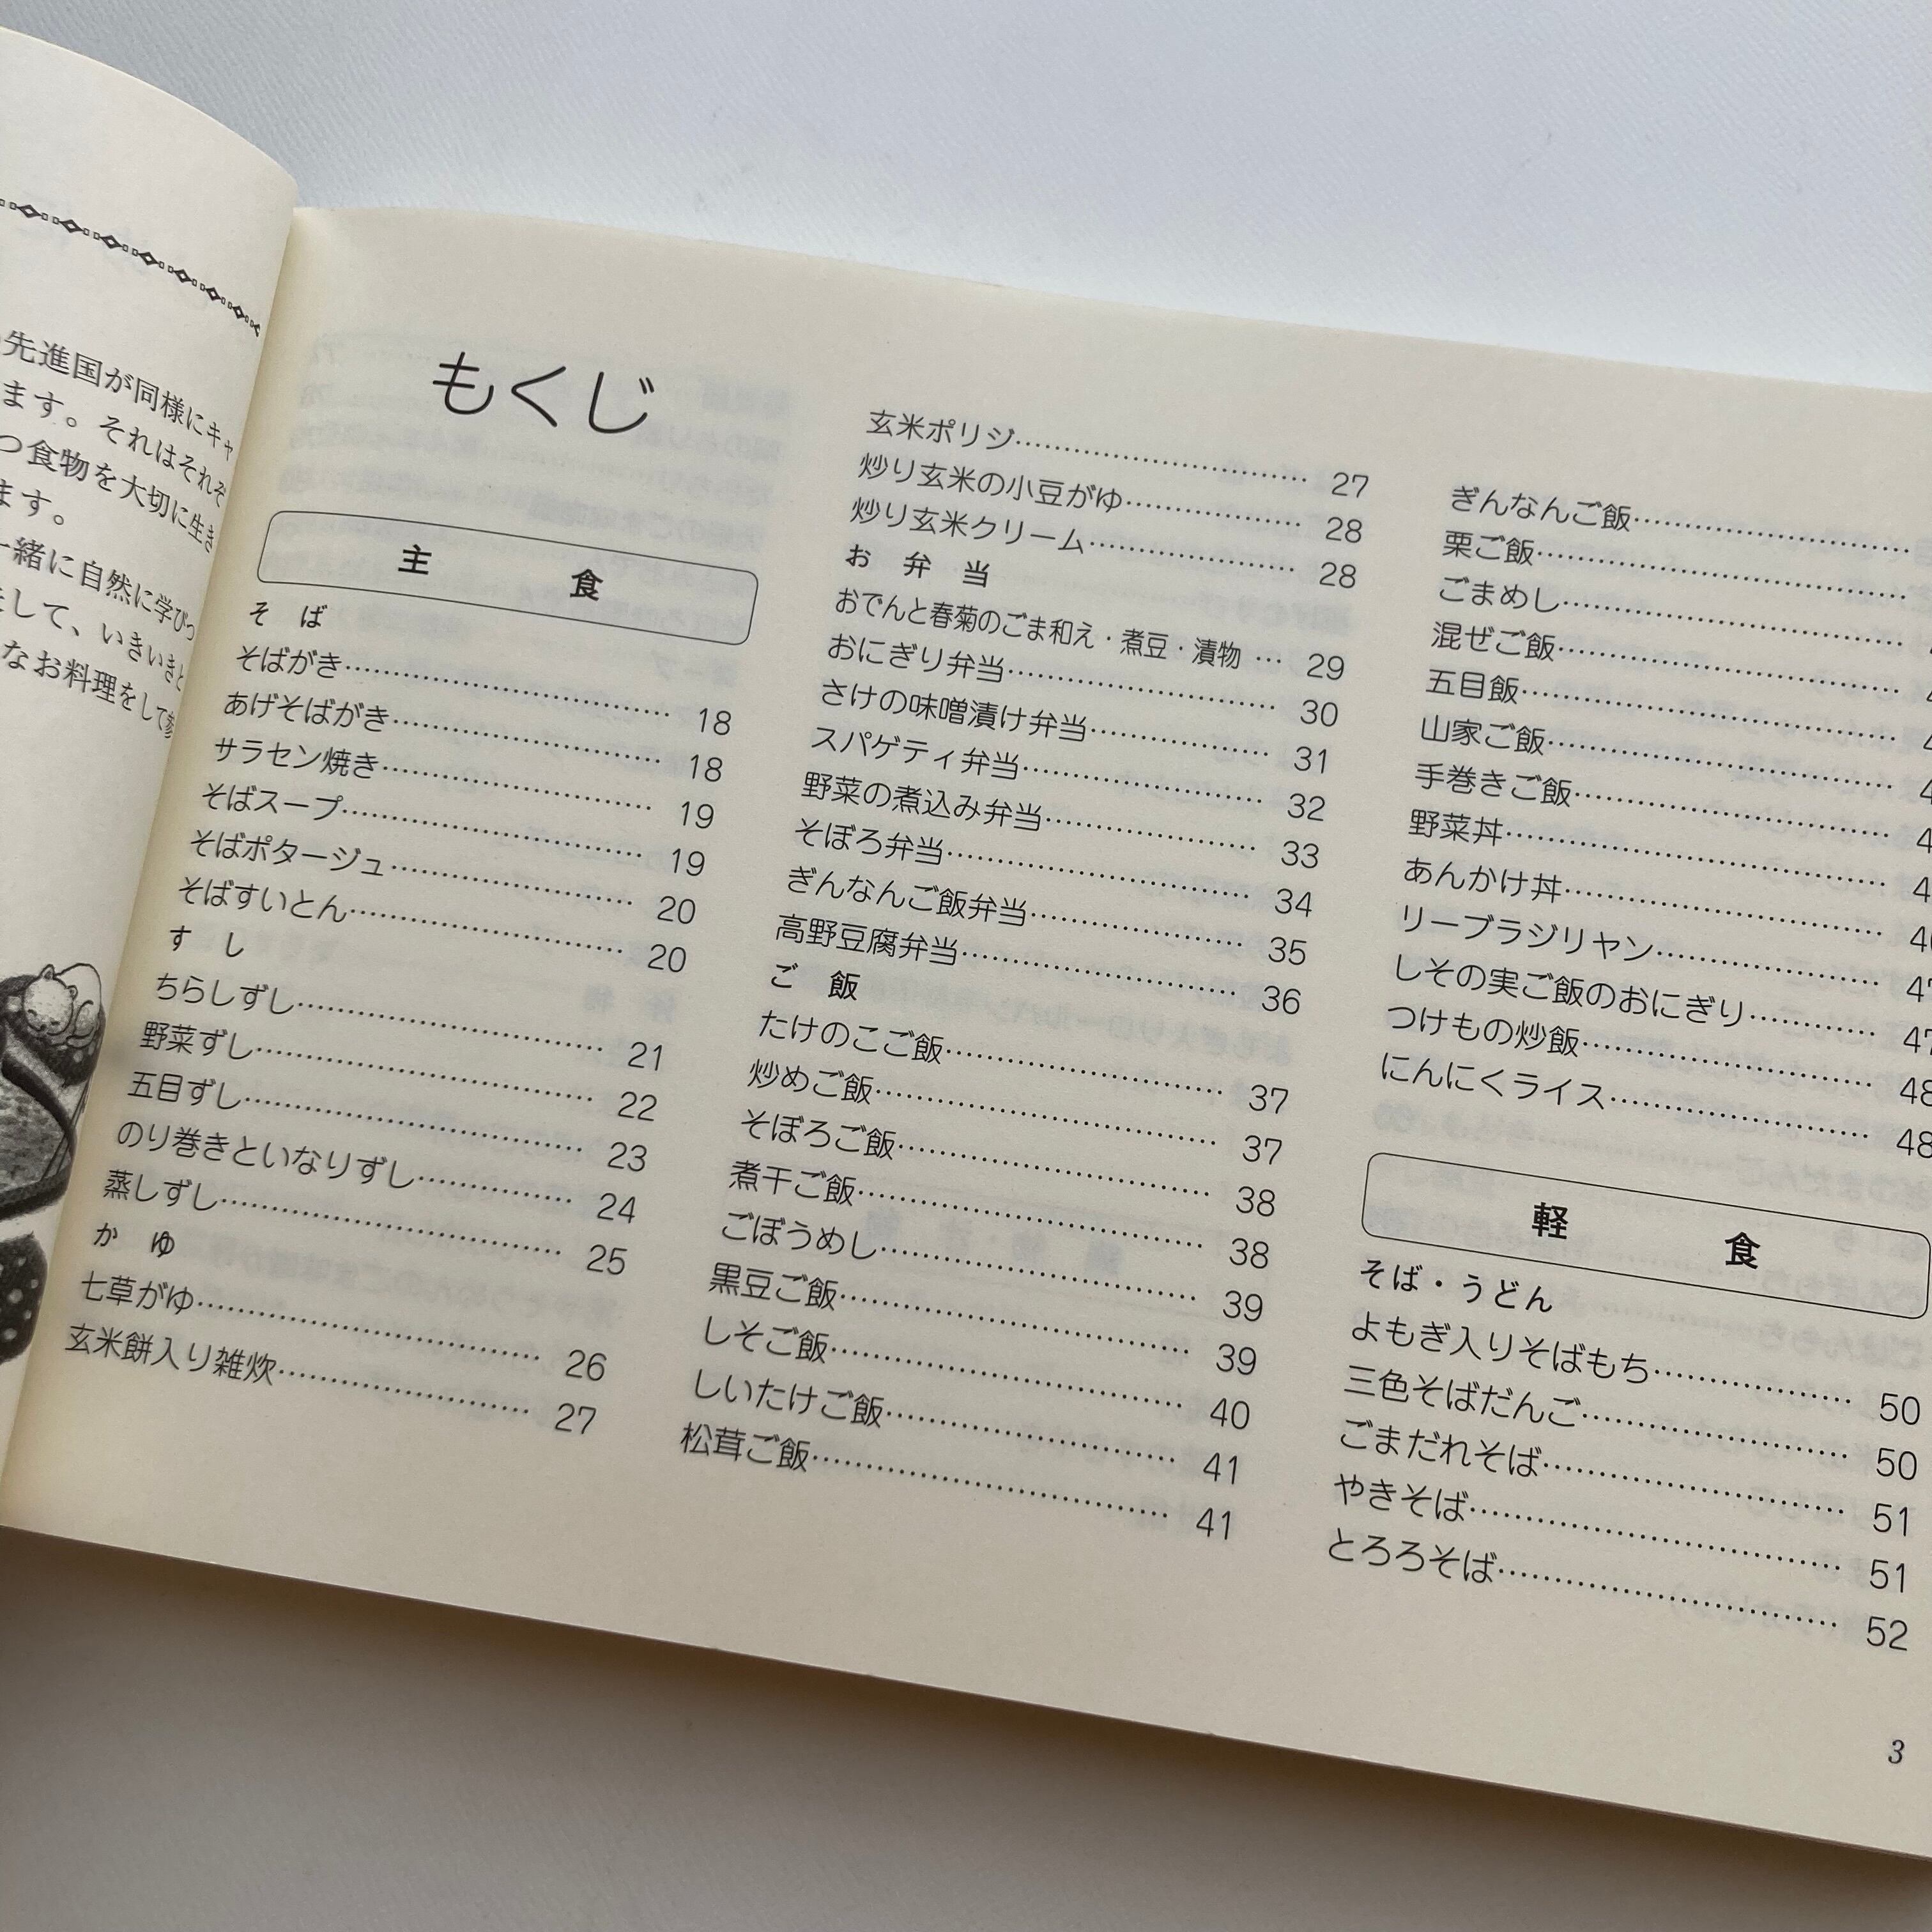 先進国が同様にキャ
ます。それはそれぞ
つ食物を大切に生き
ます。
一緒に自然に学びつ
して、いきいきと
なお料理をして参
もくじ
主 食
そ ば
そばがき…………18
あげそばがき…………18
サラセン焼き…………19
そばスープ…………19
そばポタージュ…………20
そばすいとん…………20
す し
ちらしずし…………21
野菜ずし…………22
五目ずし…………23
のり巻きといなりずし…………24
蒸しずし…………25
か ゆ
七草がゆ…………26
玄米餅入り雑炊…………27
玄米ポリジ…………27
炒り玄米の小豆がゆ…………28
炒り玄米クリーム…………28
お 弁 当
おでんと春菊のごま和え・煮豆・漬物…29
おにぎり弁当…………30
さけの味噌漬け弁当…………31
スパゲティ弁当…………32
野菜の煮込み弁当…………33
そぼろ弁当…………34
ぎんなんご飯弁当…………35
高野豆腐弁当…………36
ご 飯
たけのこご飯…………37
炒めご飯…………37
そぼろご飯…………38
煮干ご飯…………38
ごぼうめし…………39
黒豆ご飯…………39
しそご飯…………40
しいたけご飯…………41
松茸ご飯…………41
ぎんなんご飯…………
栗ご飯…………
ごまめし…………
混ぜご飯…………
五目飯…………
山家ご飯…………
手巻きご飯…………
野菜丼…………
あんかけ丼…………
リーブラジリヤン…………47
しその実ご飯のおにぎり…………47
つけもの炒飯…………48
にんにくライス…………48
軽 食
そば・うどん
よもぎ入りそばもち…………50
三色そばだんご…………50
ごまだれそば…………51
やきそば…………51
とろろそば…………52
3